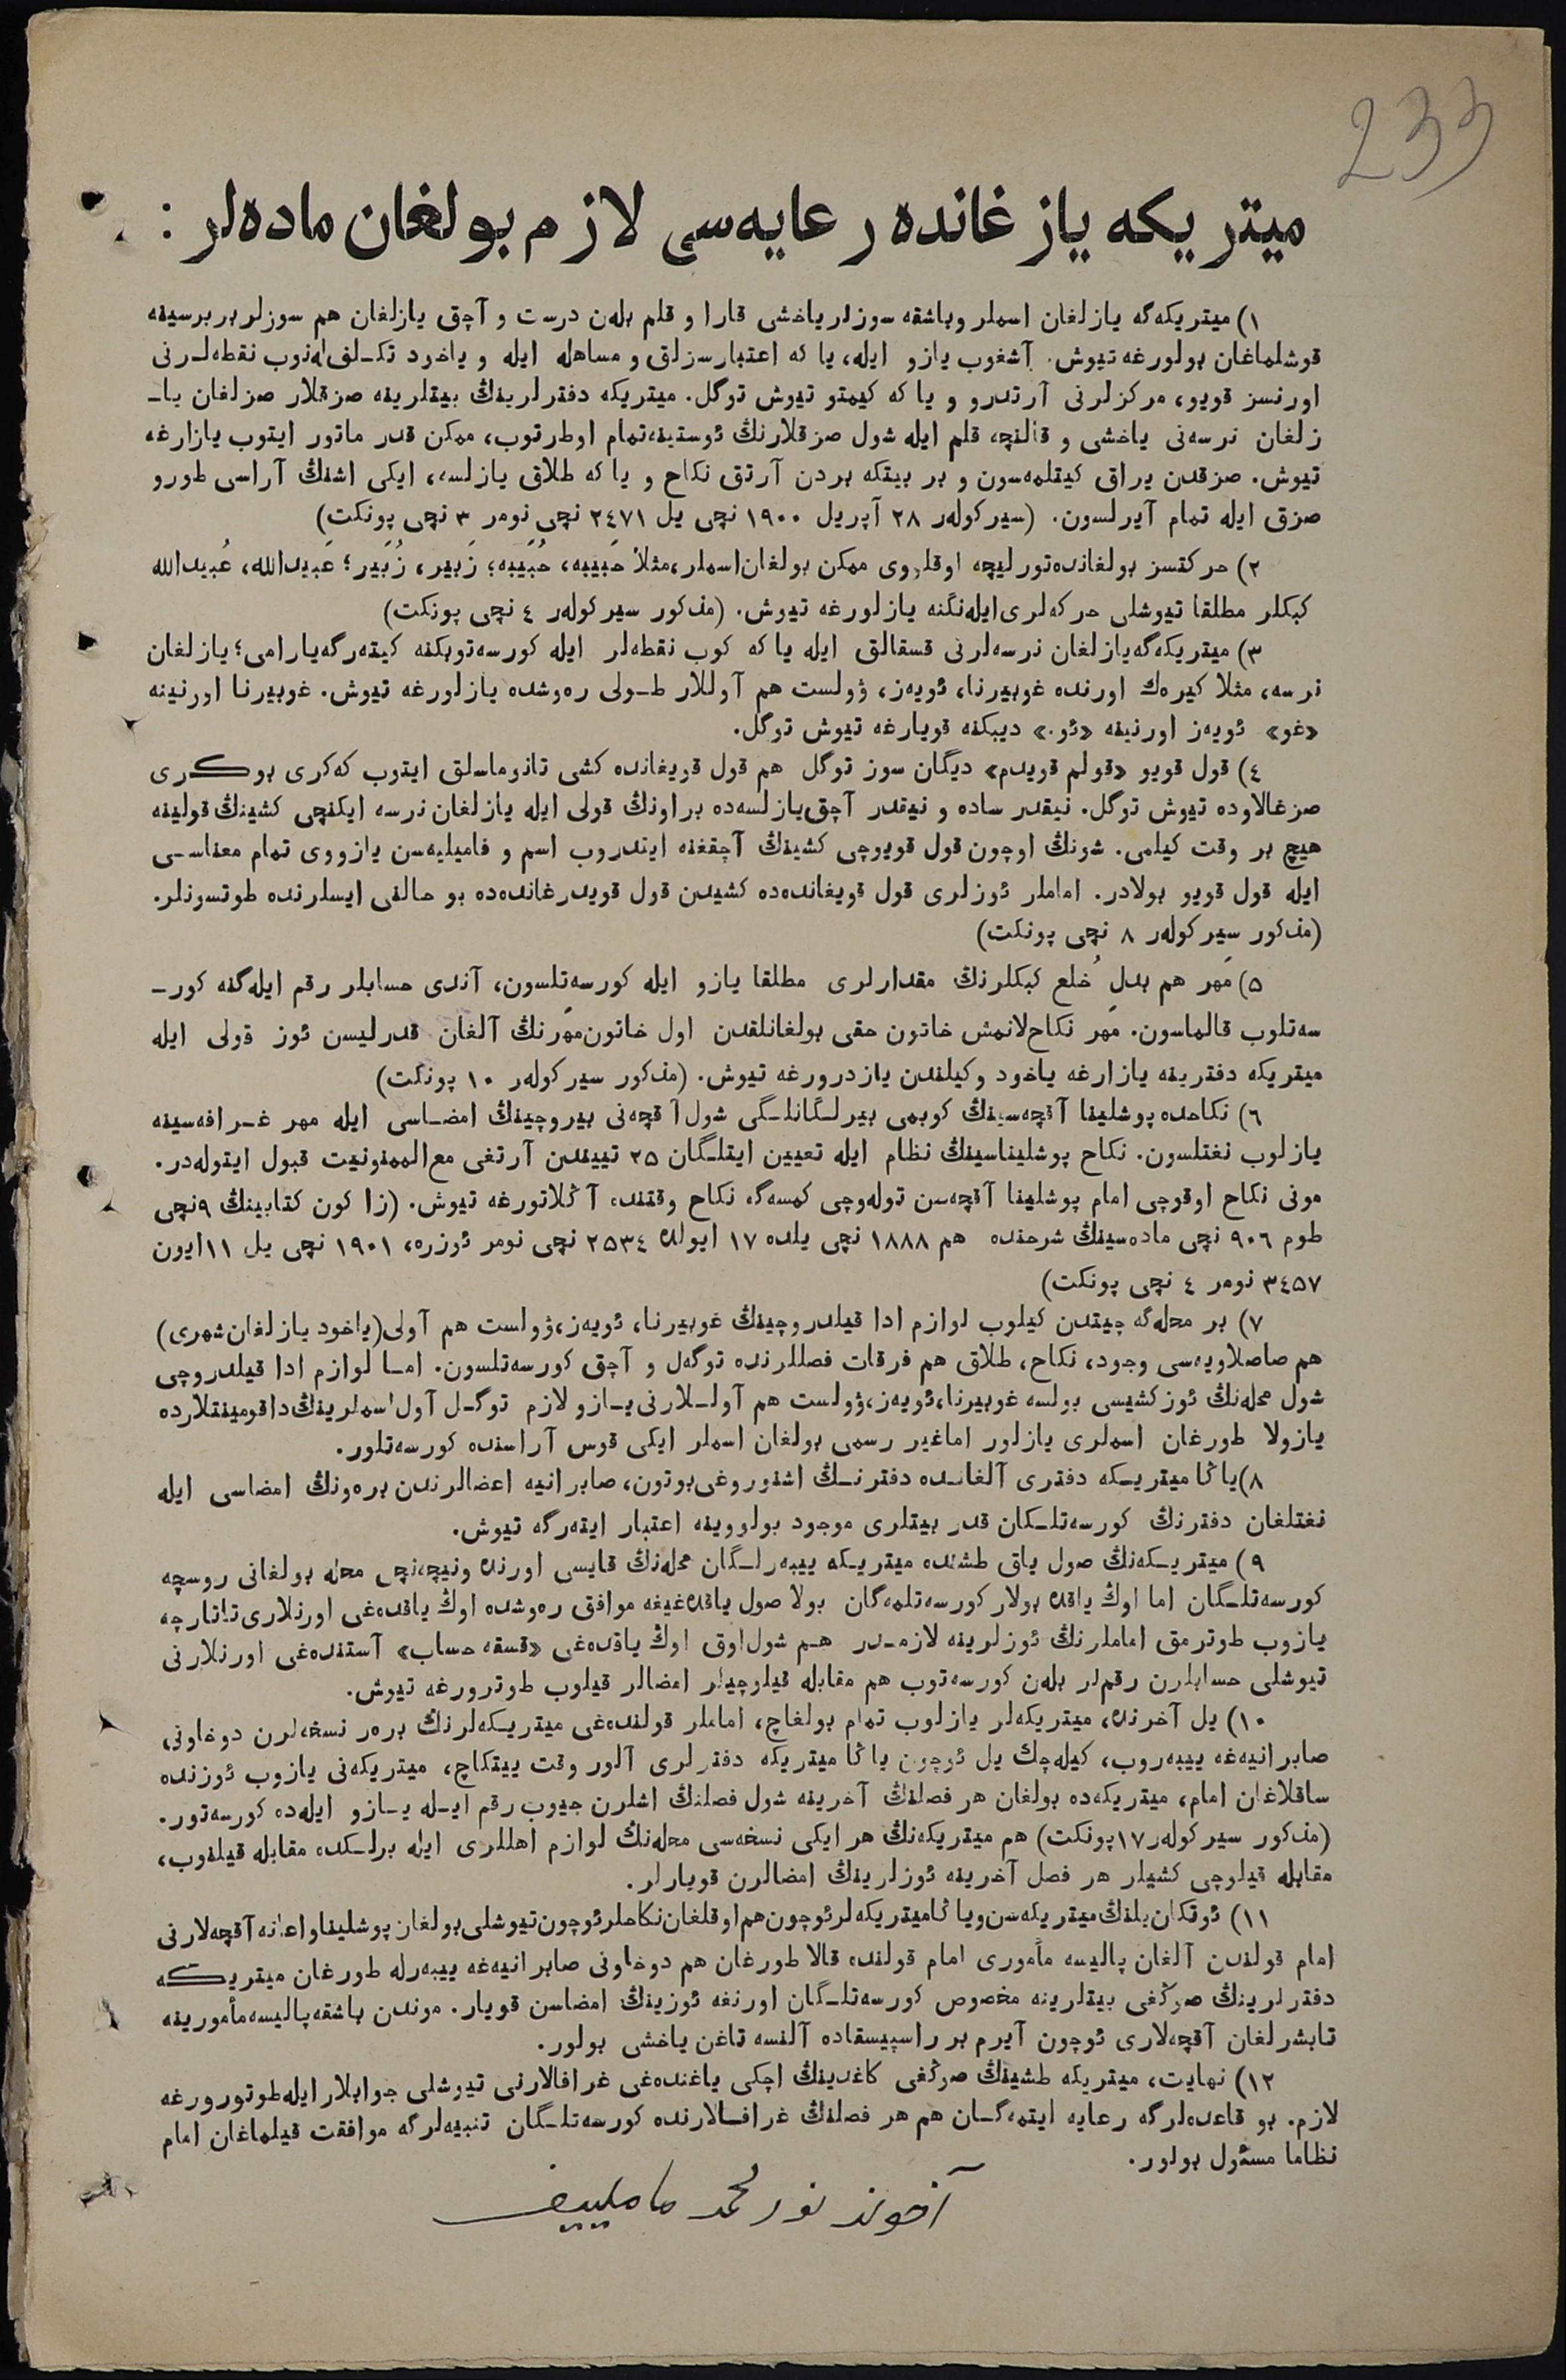 233
ميتريكه يازغانده رعايه‌سى لازم بولغان ماده‌لر :
١) ميتريكه‌گه يازلغان اسملر وباشقه سوزلر ياخشى قارا و قلم بلەن درست و آچق يازلغان هم سوزلر بر برسينه
قوشلماغان بولورغه تيوش. آشغوب يازو ايله، يا كه اعتبارسزلق و مساهله ايله و ياخود تكـلف لەنوب نقطه‌لـرنى
اورنسز قويو، مركزلرنى آرتدرو و يا كه كيمتو تيوش توگل. ميتريكه دفترلرينڭ بيتلرينه صزقلار صزلغان ياـ
زلغان نرسه‌نى ياخشى و قالنچه قلم ايله شول صزقلارنڭ ئوستينه‌تمام اوطرتوب، ممكن قدر ماتور ايتوب يازارغه
تيوش. صزقدن يراق كيتلمه‌سون و بر بيتكه بردن آرتق نكاح و يا كه طلاق يازلسه، ايكى اشنڭ آراسى طورو
صزق ايله تمام آيرلسون. (سيركولەر ٢٨ آپريل ١٩٠٠ نچى يل ٢٤٧١ نچى نومر ٣ نچى پونكت)
٢) حركتسز بولغانده‌تورليچه اوقلووى ممكن بولغان‌اسملر،مثلا حَبيبه، حُبَيبه؛ زَبير، زُبَير؛ عَبيدالله، عُبيدالله
كبكلر مطلقا تيوشلى حركه‌لرى‌ايله‌نگنه يازلورغه تيوش. (مذكور سيركولەر ٤ نچى پونكت)
٣) ميتريكه‌گه‌يازلغان نرسه‌لرنى قسقالق ايله يا كه كوب نقطه‌لر ايله كورسه‌توبكنه كيته‌رگه‌يارامى؛ يازلغان
نرسه، مثلا كيره‌ك اورنده غوبيرنا، ئويه‌ز، ۋولست هم آوللار طـولى ره‌وشده يازلورغه تيوش. غوبيرنا اورنينه
«غو» ئويه‌ز اورنينه «ئو.» ديبكنه قويارغه تيوش توگل.
٤) قول قويو «قولم قويدم» ديگان سوز توگل هم قول قويغانده كشى تانوماسلق ايتوب كه‌كرى بوكرى
صزغالاوده تيوش توگل. نيقدر ساده و نيقدر آچق‌يازلسه‌ده براونڭ قولى ايله يازلغان نرسه ايكنچى كشينڭ قولينه
هيچ بر وقت كيلمى. شونڭ اوچون قول قويوچى كشينڭ آچقغنه ايتدروب اسم و فاميليه‌سن يازووى تمام معناسـى
ايله قول قويو بولادر. اماملر ئوزلرى قول قويغانده‌ده كشيدن قول قويدرغانده‌ده بو حالنى ايسلرنده طوتسونلر.
(مذكور سيركولەر ٨ نچى پونكت)
٥) مَهر هم بدل خُلع كبكلرنڭ مقدارلرى مطلقا يازو ايله كورسه‌تلسون، آندى حسابلر رقم ايله‌گنه كورـ
سه‌تلوب قالماسون. مَهر نكاح‌لانمش خاتون حقى بولغانلقدن اول خاتون‌مَهرنڭ آلغان قدرليسن ئوز قولى ايله
ميتريكه دفترينه يازارغه ياخود وكيلندن يازدرورغه تيوش. (مذكور سيركولەر ١٠ پونكت)
٦) نكاحده پوشلينا آقچه‌سينڭ كوبمى بيرلـگانلـگى شول آقچه‌نى بيروچينڭ امضـاسى ايله مهر غـرافه‌سينه
يازلوب نغتلسون. نكاح پوشليناسينڭ نظام ايله تعيين ايتلـگان ٢٥ تييندن آرتغى مع‌الممنونيت قبول ايتوله‌در.
مونى نكاح اوقوچى امام پوشلينا آقچه‌سن توله‌وچى كمسه‌گه نكاح وقتنده آڭلاتورغه تيوش. (زاكون كتابينڭ ٩نچى
طوم ٩٠٦ نچى ماده‌سينڭ شرحنده هم ١٨٨٨ نچى يلده ١٧ ايولده ٢٥٣٤ نچى نومر ئوزره، ١٩٠١ نچى يل ١١ايون
٣٤٥٧ نومر ٤ نچى پونكت)
٧) بر محله‌گه چيتدن كيلوب لوازم ادا قيلدروچينڭ غوبيرنا، ئويه‌ز،ۋولست هم آولى(ياخود يازلغان‌شهرى)
هم صاصلاويه‌سى وجود، نكاح، طلاق هم فرقات فصللرنده توگه‌ل و آچق كورسه‌تلسون. امـا لوازم ادا قيلدروچى
شول محله‌نڭ ئوز كشيسى بولسه غوبيرنا،ئويه‌ز،ۋولست هم آولـلارنى يـازو لازم توگـل آول‌اسملرينڭ‌داقومينتلارده
يازولا طورغان اسملرى يازلور اماغير رسمى بولغان اسملر ايكى قوس آراسنده كورسه‌تلور.
٨)ياڭا ميتريـكه دفترى آلغانـده دفترنـڭ اشنوروغى‌بوتون، صابرانيه اعضالرندن بره‌ونڭ امضاسى ايله
نغتلغان دفترنڭ كورسه‌تلـكان قدر بيتلرى موجود بولووينه اعتبار ايته‌رگه تيوش.
٩) ميتريـكه‌نڭ صول ياق طشنده ميتريـكه ييبه‌رلـگان محله‌نڭ قايسى اورنده ونيچه‌نچى محله بولغانى روسچه
كورسه‌تلـگان اما اوڭ ياقده بولار كورسه‌تلمه‌گان بولا صول ياقده‌غيغه موافق ره‌وشده اوڭ ياقده‌غى اورنلارى‌تاتارچه
يازوب طوترمق اماملرنڭ ئوزلرينه لازمـدر هـم شول‌اوق اوڭ ياقده‌غى «قسقه حساب» آستنده‌غى اورنلارنى
تيوشلى حسابلرن رقم‌لر بلەن كورسه‌توب هم مقابله قيلوچيلر امضالر قيلوب طوترورغه تيوش.
١٠) يل آخرنده، ميتريكه‌لر يازلوب تمام بولغاچ، اماملر قولنده‌غى ميتريـكه‌لرنڭ بره‌ر نسخه‌لرن دوخاونى
صابرانيه‌غه ييبه‌روب، كيله‌چك يل ئوچون ياڭا ميتريكه دفترلرى آلور وقت ييتكاچ، ميتريكه‌نى يازوب ئوزنده
ساقلاغان امام، ميتريكه‌ده بولغان هر فصلنڭ آخرينه شول فصلنڭ اشلرن جيوب رقم ايـله يـازو ايله‌ده كورسه‌تور.
(مذكور سيركولەر١٧پونكت) هم ميتريكه‌نڭ هر ايكى نسخه‌سى محله‌نڭ لوازم اهللرى ايله برلـكده مقابله قيلنوب،
مقابله قيلوچى كشيلر هر فصل آخرينه ئوزلرينڭ امضالرن قويارلر.
١١) ئوتكان‌يلنڭ‌ميتريكه‌سن‌وياڭاميتريكه‌لرئوچون‌هم‌اوقلغان‌نكاحلرئوچون‌تيوشلى‌بولغان‌پوشليناواعانه‌آقچه‌لارنى
امام قولندن آلغان پاليسه مأمورى امام قولنده قالا طورغان هم دوخاونى صابرانيه‌غه ييبه‌رله طورغان ميتريـكه
دفترلرينڭ صوڭغى بيتلرينه مخصوص كورسه‌تلـگان اورنغه ئوزينڭ امضاسن قويار. موندن باشقه‌پاليسه‌مأمورينه
تابشرلغان آقچه‌لارى ئوچون آيرم بر راسپيسقاده آلنسه تاغن ياخشى بولور.
١٢) نهايت، ميتريكه طشينڭ صوڭغى كاغدينڭ اچكى ياغنده‌غى غرافالارنى تيوشلى جوابلار ايله‌طوتورورغه
لازم. بو قاعده‌لرگه رعايه ايتمه‌گـان هم هر فصلنڭ غرافـالارنده كورسه‌تلـگان تنبيه‌لرگه موافقت قيلماغان امام
نظاما مسئول بولور.
آخوند نورمحمد ماملييف